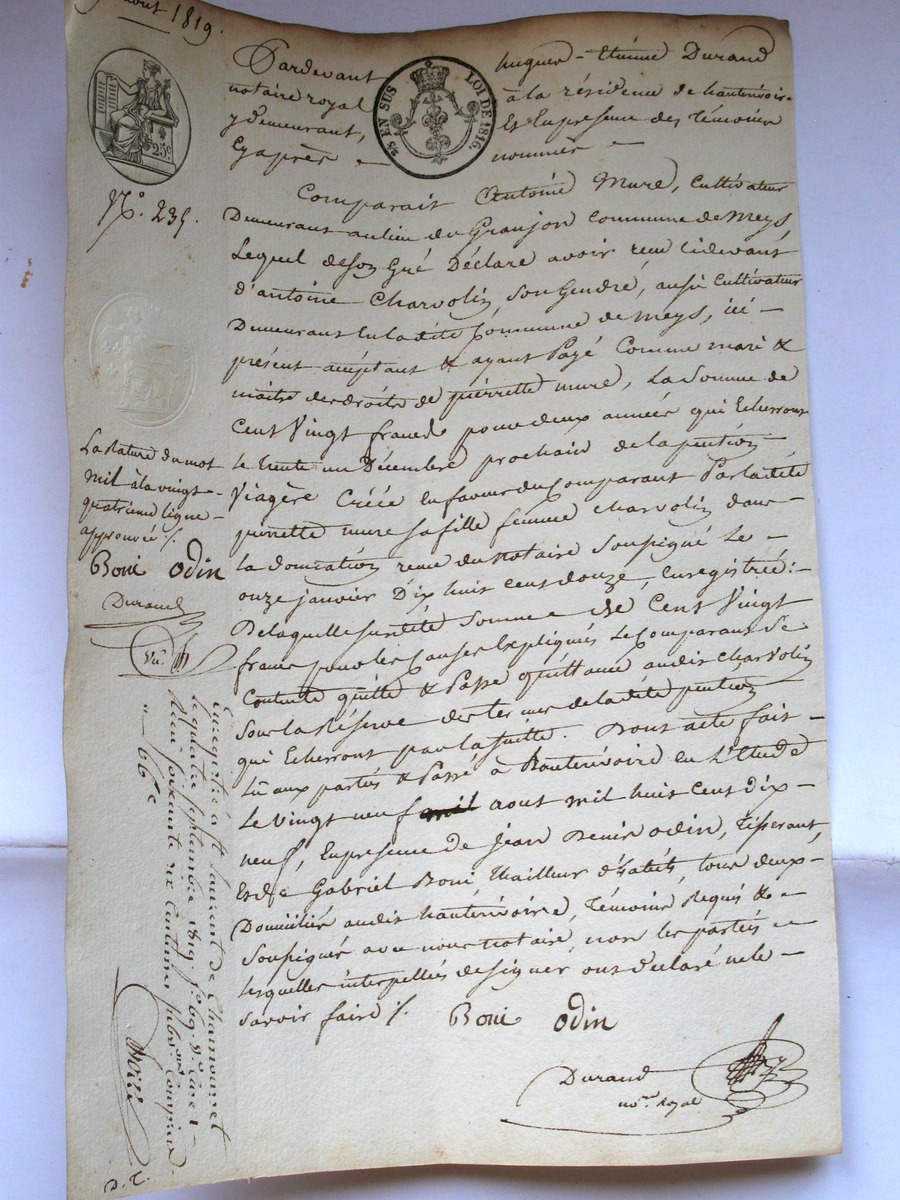 aout 1819.
25 EN SUS
LOI DE 1816.
25c.
Pardevant hugues - Etienne Durand
notaire royal à la résidence de hauterivoire
y demeurant, Et en presense des Témoins
Cy après nommés
N.o 235.
Comparait Antoine Mure, Cultivateur
Demeurant au lieu du Granjon Commune de Meys,
Lequel de son Gré Déclare avoir reçu cidevant
d'antoine Charvolin, son Gendre, aussi Cultivateur
Demeurant en la dite Commune de Meys, ici
présent acceptant & ayant Payé Comme mari &
maitre des droits de pierrette mure, La Somme de
Cent Vingt francs pour deux années qui Echerront
le trente un Décembre prochain de la pention
Viagère Créée en faveur du Comparant Par la dite
pierrette mure sa fille femme Charvolin dans
la donnation reçue du Notaire Soussigné Le
onze janvier Dix huit cent douze, Enregistrée:
De laquelle susdite Somme de Cent Vingt
francs pour les Causes Expliqués Le Comparant Se
Contente quitte & Passe quittance audit Charvolin
Sous la Réserve des termes de la dite pention
qui Echerront par la suitte. Dont acte fait
Lu aux parties & Passé à hauterivoire en L'Etude
Le Vingt neuf mil aout mil huit Cent dix
neuf, En presense de Jean Denis odin, Tisserant,
Et de Gabriel Boni, thailleur d'habits, tous deux
Domiciliés audit hauterivoire, Témoins Requis &
Soussignés avec nous notaire, non les parties
lesquelles interpellées de signer ont déclaré ne le
savoir faire /.
Boni odin
Durand
no.re Royal
La Rature du mot
mil à la vingt
quatrieme ligne
approuvée /.
Boni odin
Durand
Enregistré à St Laurent de Chamousset
le quatre septembre 1819 f.o 69 v.o Case 1
Reçu soixante six Centimes subv.on Comprise
66 c
D. C.